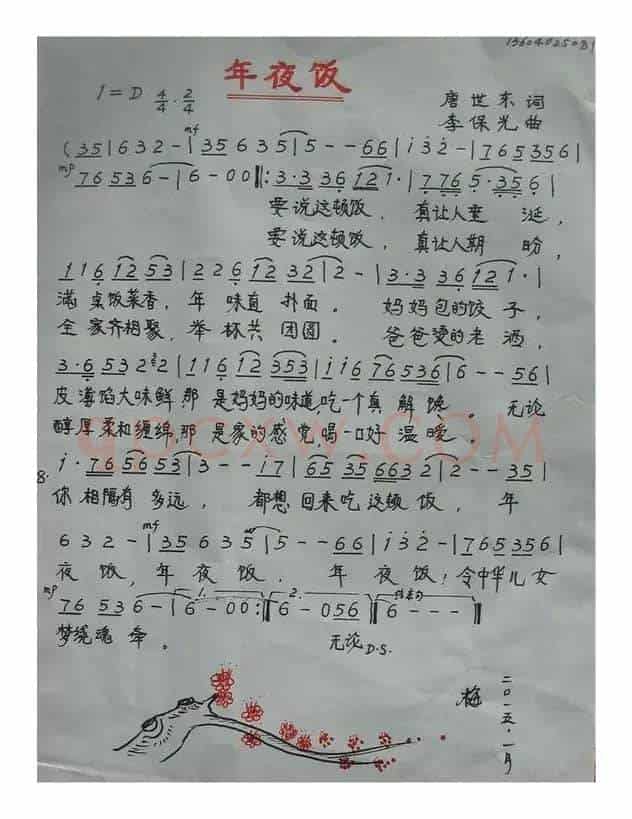 13604025081
年夜饭
1=D 4/4 · 2/4
唐世东 词
李保光 曲
mf
(35|632-|356335|5--66|132-|765356|
mp
76536-|6-00‖:3·336121·|7765·356|
要说这顿饭，真让人垂涎，
要说这顿饭，真让人期盼，
1161253|2261232|2-|3·336121·|
满桌饭菜香，年味直扑面。妈妈包的饺子，
全家齐相聚，举杯共团圆。爸爸烫的老酒，
3·653222|11612353|11676536|6--56|
皮薄馅大味鲜，那是妈妈的味道，吃一个真解馋。无论
醇厚柔和缠绵，那是家的感觉，喝一口好温暖。
QCCXW.COM
8.
1·765653|3--17|65356632|2--35|
你相隔有多远，都想回来吃这顿饭，年
mf
632-|356355|5--66|132-|765356|
夜饭，年夜饭，年夜饭！令中华儿女
mp
1. 2. 结束句
76536-|6-00:‖6-056‖6---‖
梦绕魂牵。无论 D.S.
梅
二〇一五·一月